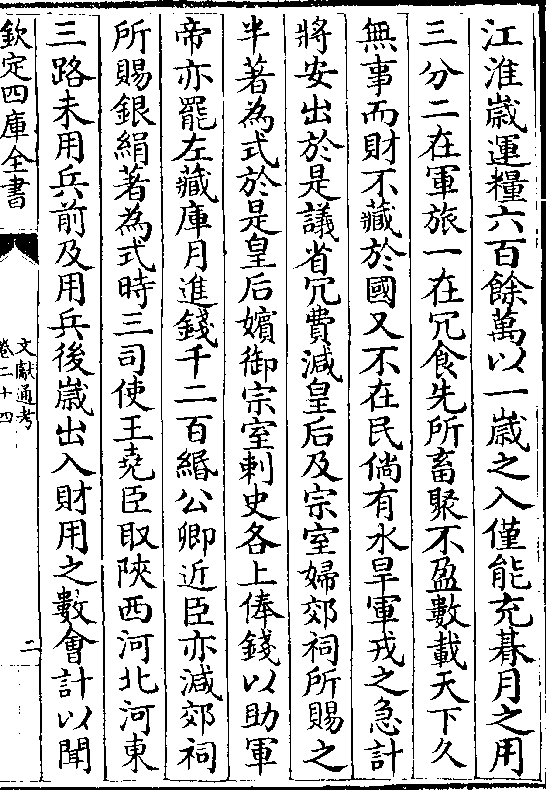 江淮嵗運糧六百餘萬以一嵗之入僅能充朞月之用
三分二在軍旅一在冗食先所畜聚不盈數載天下久
無事而財不藏於國又不在民倘有水旱軍戎之急計
將安出於是議省冗費減皇后及宗室婦郊祠所賜之
半著為式於是皇后嬪御宗室刺史各上俸錢以助軍
帝亦罷左藏庫月進錢千二百緡公卿近臣亦減郊祠
所賜銀絹著為式時三司使王堯臣取陜西河北河東
三路未用兵前及用兵後嵗出入財用之數會計以聞
欽定四庫全書
文獻通考
卷二十四
二